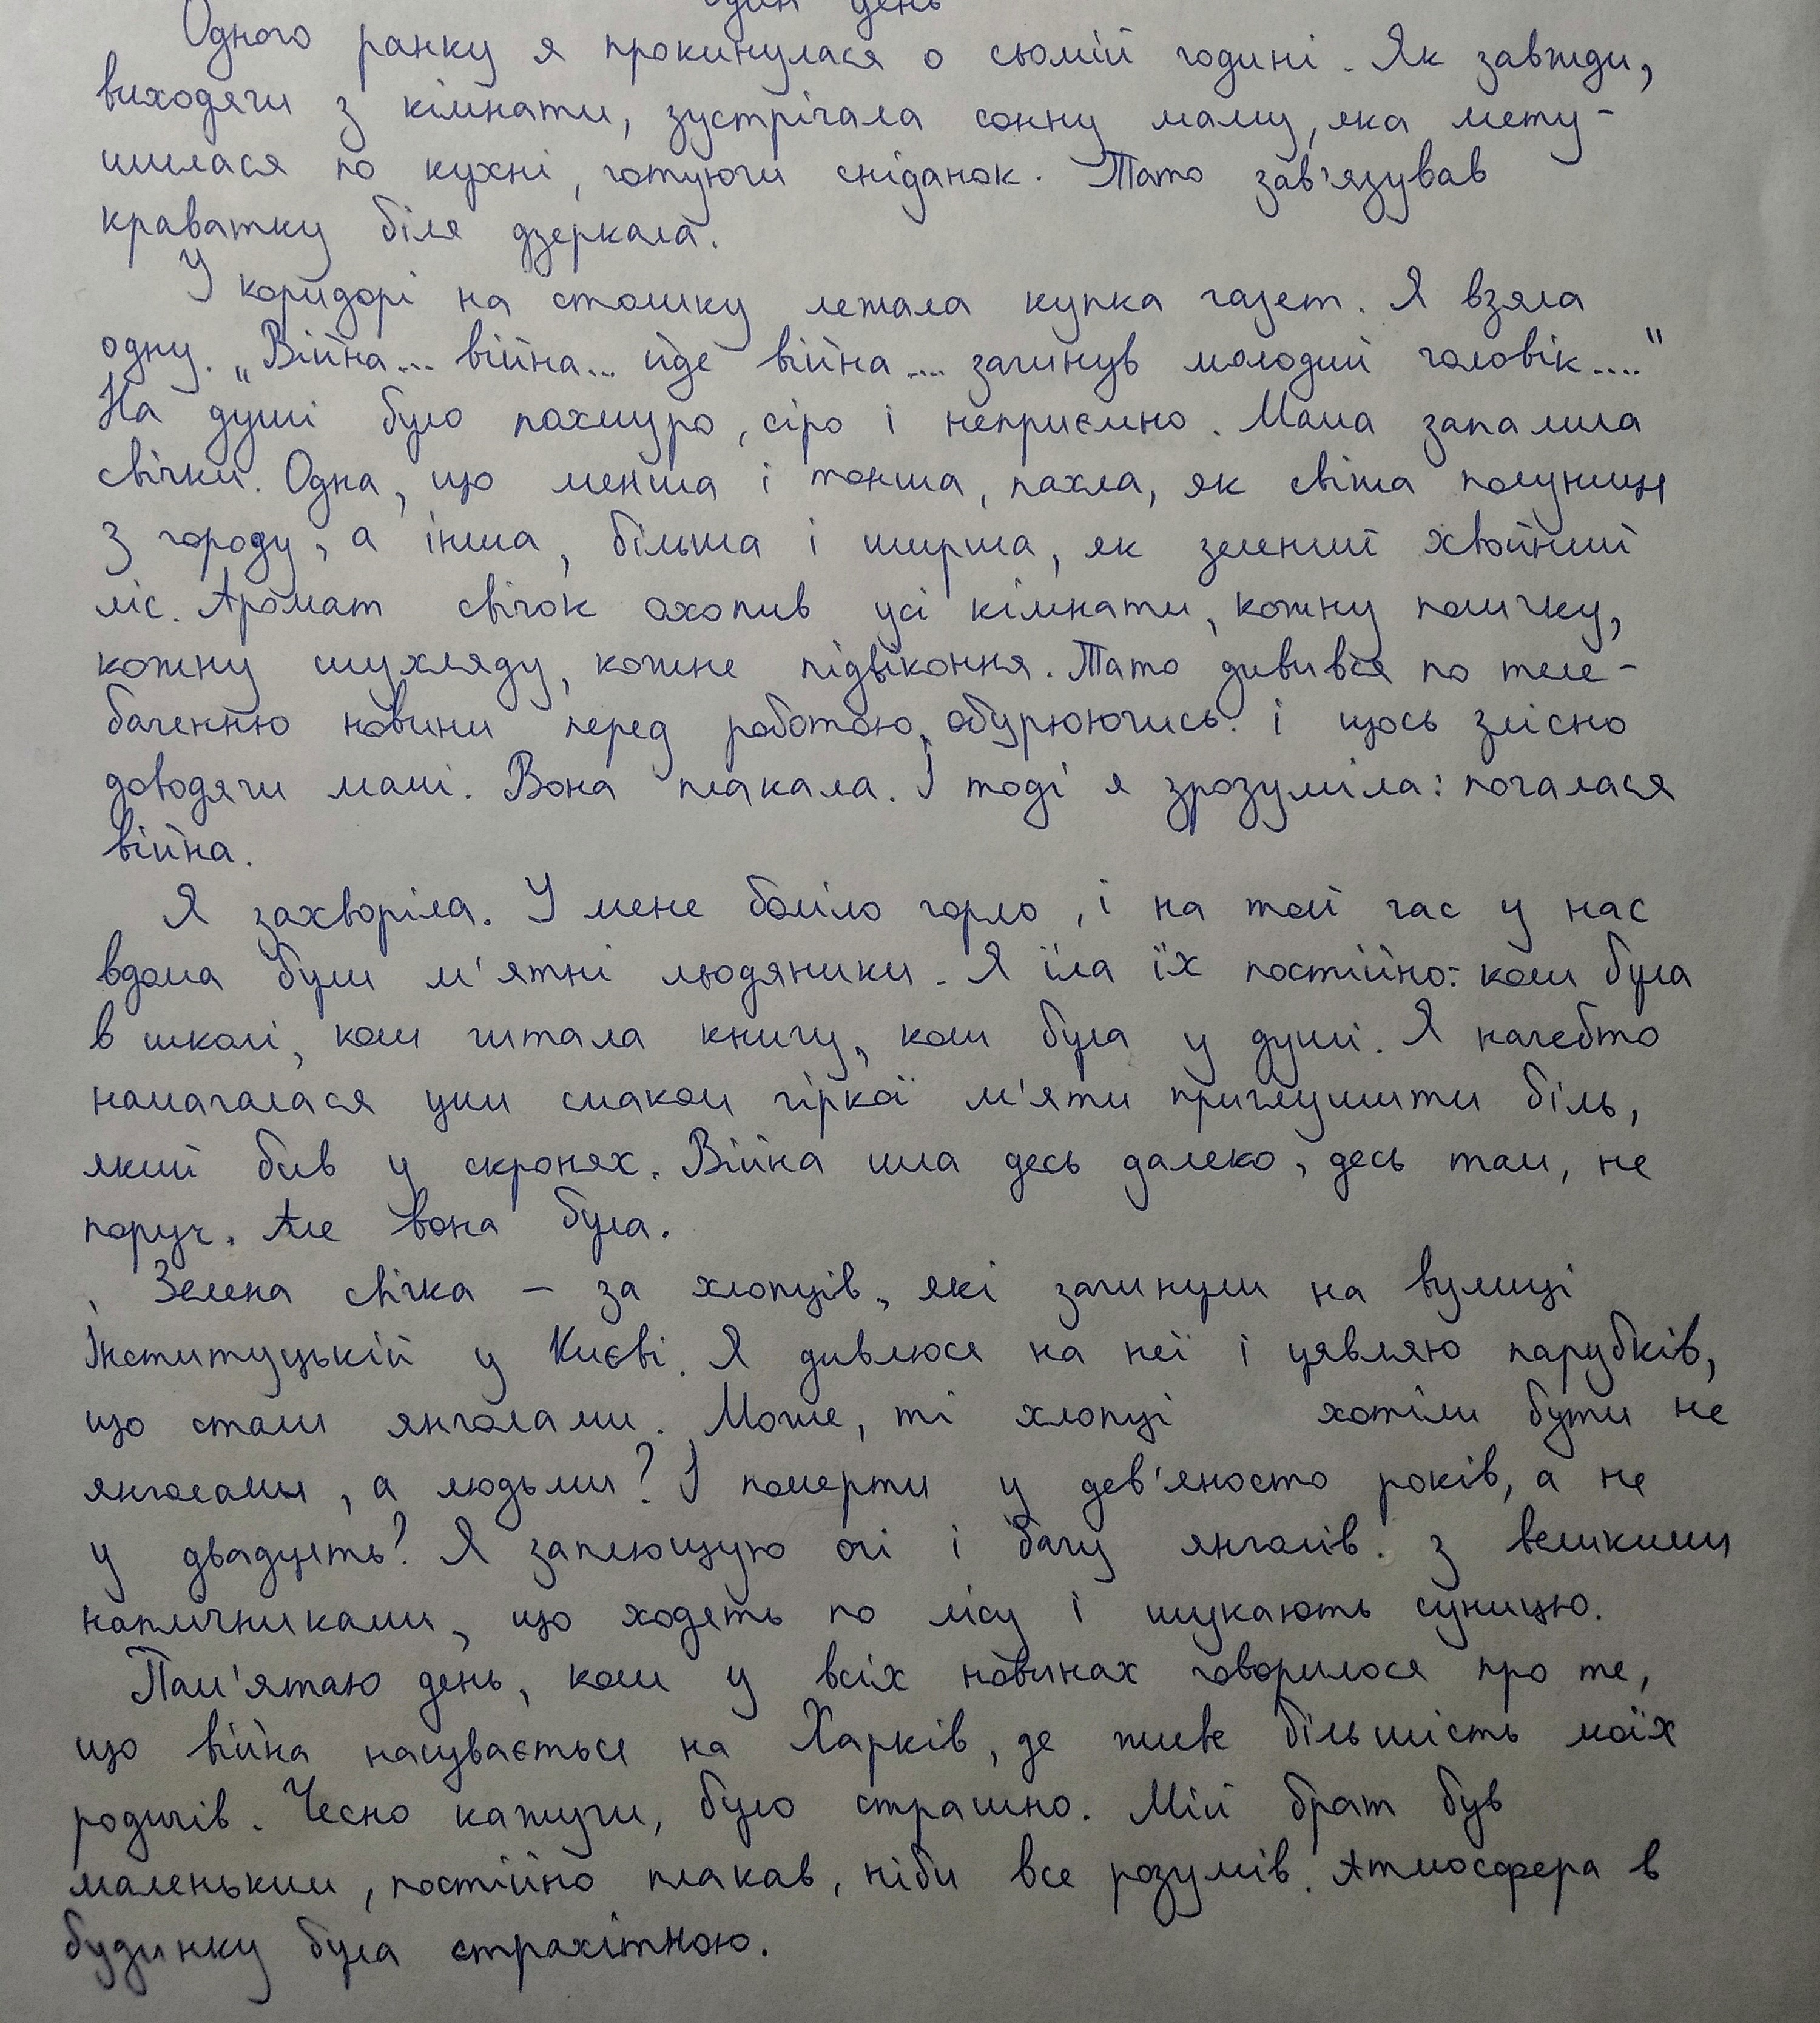 один день
Одного ранку я прокинулася о сьомій годині. Як завжди,
виходячи з кімнати, зустрічала сонну маму, яка мету-
шилася по кухні, готуючи сніданок. Тато зав'язував
краватку біля дзеркала.
У коридорі на столику лежала купка газет. Я взяла
одну. „Війна... війна... йде війна.... загинув молодий чоловік...."
На душі було похмуро, сіро і неприємно. Мама запалила
свічки. Одна, що менша і тонша, пахла, як свіжа полуниця
з городу, а інша, більша і ширша, як зелений хвойний
ліс. Аромат свічок охопив усі кімнати, кожну поличку,
кожну шухляду, кожне підвіконня. Тато дивився по теле-
баченню новини перед роботою, обурюючись і щось злісно
доводячи мамі. Вона плакала. І тоді я зрозуміла: почалася
війна.
Я захворіла. У мене боліло горло, і на той час у нас
вдома були м'ятні льодяники. Я їла їх постійно: коли була
в школі, коли читала книгу, коли була у душі. Я начебто
намагалася цим смаком гіркої м'яти приглушити біль,
який бив у скронях. Війна йшла десь далеко, десь там, не
поруч. Але вона була.
Зелена свічка – за хлопців, які загинули на вулиці
Інституцькій у Києві. Я дивлюся на неї і уявляю парубків,
що стали янголами. Може, ті хлопці хотіли бути не
янголами, а людьми? І померти у дев'яносто років, а не
у двадцять? Я заплющую очі і бачу янголів з великими
наплічниками, що ходять по лісу і шукають суницю.
Пам'ятаю день, коли у всіх новинах говорилося про те,
що війна насувається на Харків, де живе більшість моїх
родичів. Чесно кажучи, було страшно. Мій брат був
маленьким, постійно плакав, ніби все розумів. Атмосфера в
будинку була страхітною.